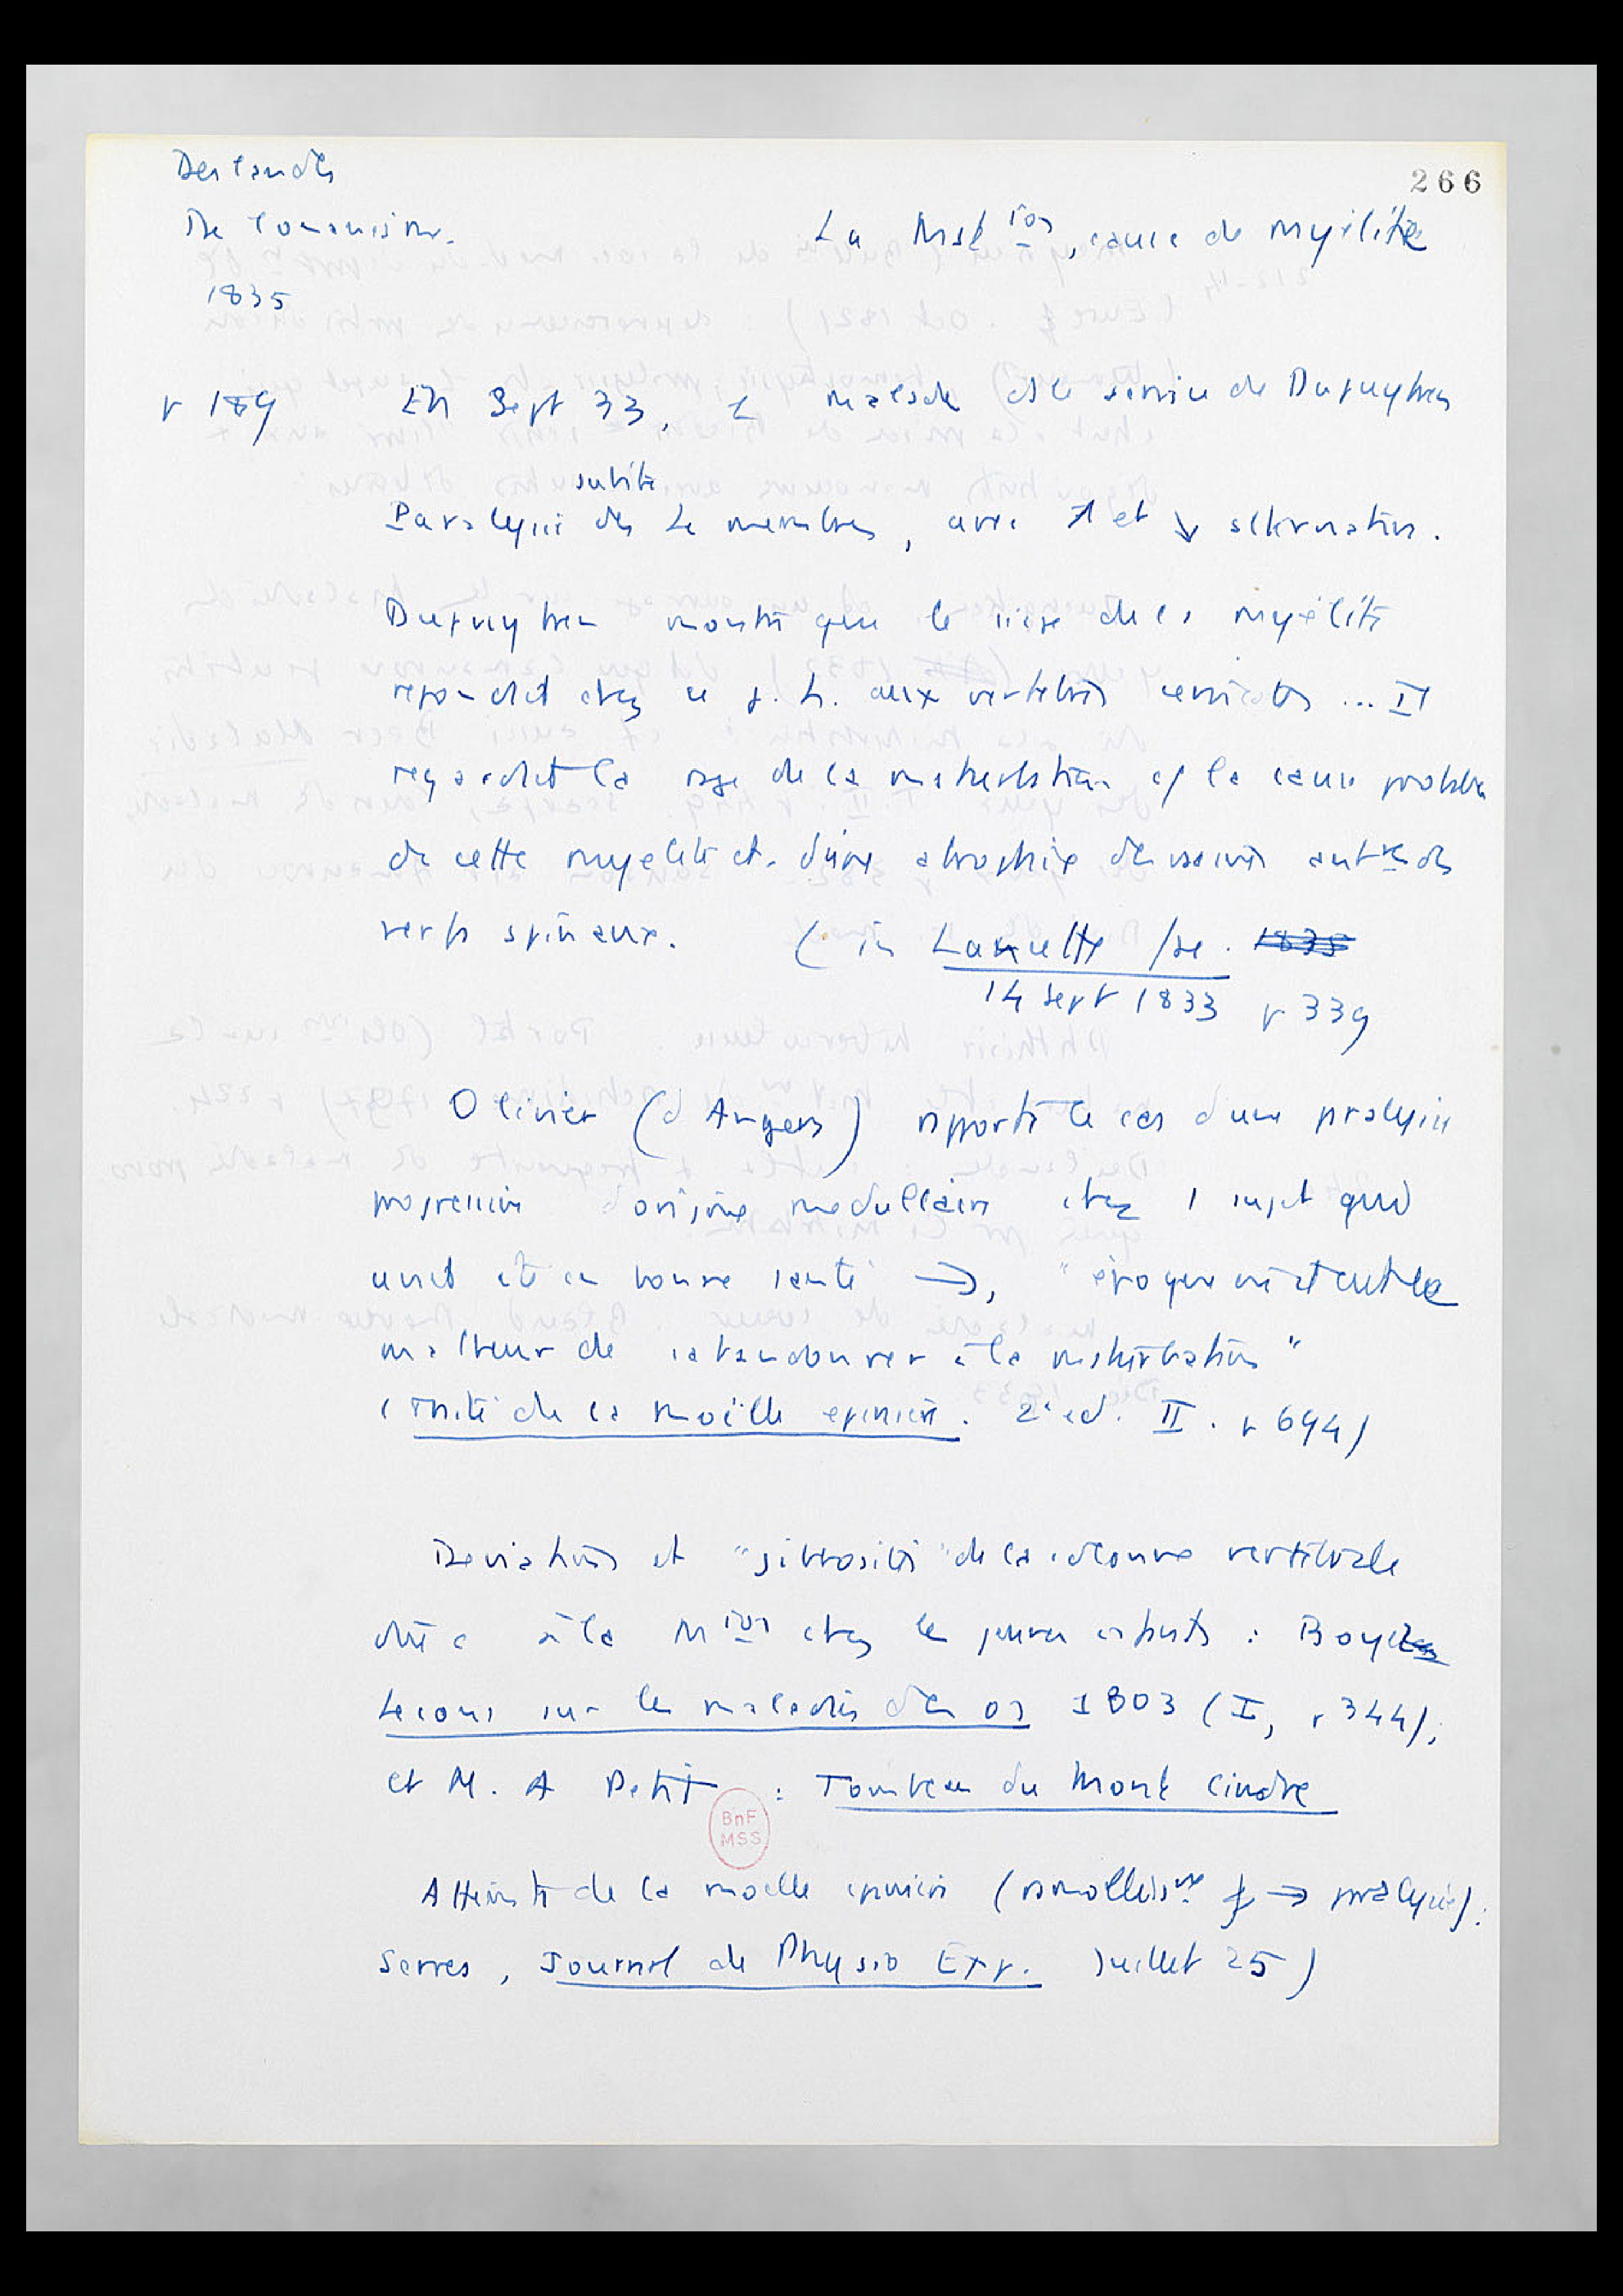 Deslandes
266
De l'onanisme.
La Mast ion, cause de myélite
1835
p 189 En Sept 33, 1 malade ds le service de Dupuytren
subite
Paralysie des 4 membres, avec ↗ et ↘ alternatives.
Dupuytren montre que le siège de la myélite
répondait chez ce j. h. aux vertèbres cervicales ... Il
regardait la rage de la masturbation c/ la cause probable
de cette myélite et d'une atrophie des racines ant res des
nerfs spinaux. (in Lancette fse. 1835
14 sept 1833 p 339
Olivier (d'Angers) rapporte le cas d'une paralysie
progressive d'origine médullaire chez 1 sujet qui
avait été en bonne santé →, "époque où il eut le
malheur de s'abandonner à la masturbation"
(Traité de la moëlle épinière. 2e ed. II. p 694)
Déviations et "gibbosités" de la colonne vertébrale
due à la M ion chez les jeunes enfants : Boyer
Leçons sur les maladies des os 1803 (I, p 344);
et M. A Petit : Tombeau du Mont Cindre
BnF
MSS
Atteinte de la moelle épinière (ramolliss nt → paralysie).
Serres, Journal de Physio Exp. Juillet 25)